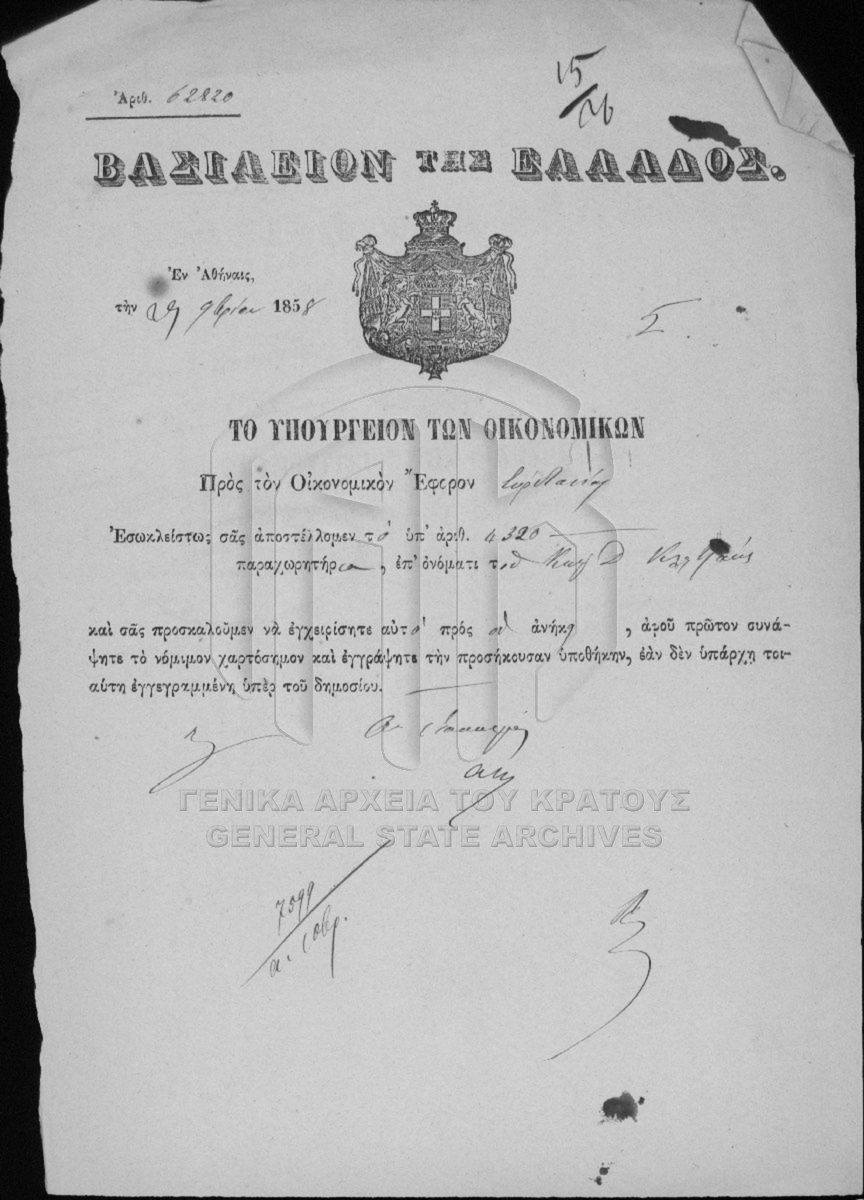 Ἀριθ. 62820
15/26
ΒΑΣΙΛΕΙΟΝ ΤΗΣ ΕΛΛΑΔΟΣ.
Ἐν Ἀθήναις,
τὴν 29 9βρίου 1858
ΤΟ ΥΠΟΥΡΓΕΙΟΝ ΤΩΝ ΟΙΚΟΝΟΜΙΚΩΝ
Πρὸς τὸν Οἰκονομικὸν Ἔφορον
Ἐσωκλείστως σᾶς ἀποστέλλομεν τὸ ὑπ' ἀριθ. 4320
παραχωρητήριον, ἐπ' ὀνόματι τοῦ
καὶ σᾶς προσκαλοῦμεν νὰ ἐγχειρίσητε αὐτὸ πρὸς ὃν ἀνήκει, ἀφοῦ πρῶτον συνά-
ψητε τὸ νόμιμον χαρτόσημον καὶ ἐγγράψητε τὴν προσήκουσαν ὑποθήκην, ἐὰν δὲν ὑπάρχῃ τοι-
αύτη ἐγγεγραμμένη ὑπὲρ τοῦ δημοσίου.
ΓΕΝΙΚΑ ΑΡΧΕΙΑ ΤΟΥ ΚΡΑΤΟΥΣ
GENERAL STATE ARCHIVES
7599